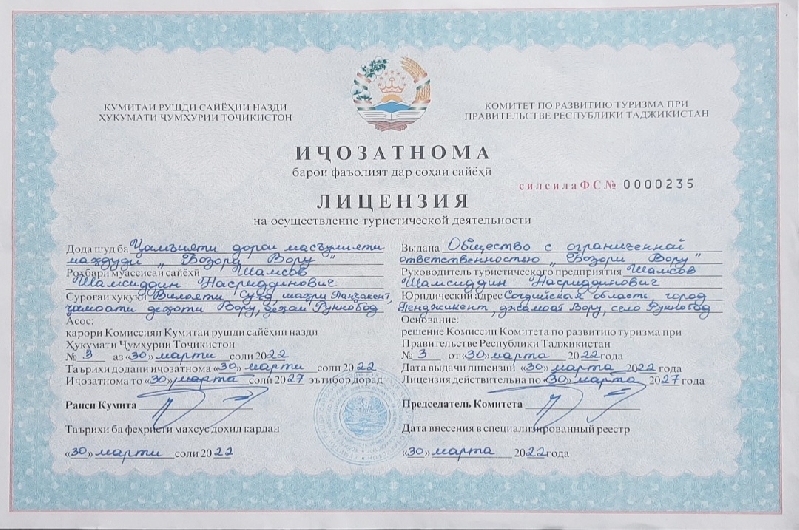 КУМИТАИ РУШДИ САЙЁҲИИ НАЗДИ
ҲУКУМАТИ ҶУМҲУРИИ ТОҶИКИСТОН
КОМИТЕТ ПО РАЗВИТИЮ ТУРИЗМА ПРИ
ПРАВИТЕЛЬСТВЕ РЕСПУБЛИКИ ТАДЖИКИСТАН
ИҶОЗАТНОМА
барои фаъолият дар соҳаи сайёҳӣ
силсила ФС № 0000235
ЛИЦЕНЗИЯ
на осуществление туристической деятельности
Дода шуд ба Ҷамъияти дорои масъулияти
маҳдуди „Возори Вору"
Роҳбари муассисаи сайёҳӣ Шамсов
Шамсиддин Насриддинович
Суроғаи ҳуқуқӣ Вилояти Суғд шаҳри Панҷакент,
ҷамоати деҳоти Вору, деҳаи
Асос:
қарори Комиссияи Кумитаи рушди сайёҳии назди
Ҳукумати Ҷумҳурии Тоҷикистон
№ 3 аз «30» марти соли 2022
Таърихи додани иҷозатнома «30» марти соли 2022
Иҷозатнома то «30» марта соли 2027 эътибор дорад
Раиси Кумита
Таърихи ба феҳристи махсус дохил кардан
«30» марти соли 2022
Выдана Общество с ограниченной
ответственностью „Возори Вору"
Руководитель туристического предприятия Шамсов
Шамсиддин Насриддинович
Юридический адрес Согдийская область, город
Пенджикент, джамоат Вору, село
Основание:
решение Комиссии Комитета по развитию туризма при
Правительстве Республики Таджикистан
№ 3 от «30» марта 2022 года
Дата выдачи лицензии «30» марта 2022 года
Лицензия действительна по «30» марта 2027 года
Председатель Комитета
Дата внесения в специализированный реестр
«30» марта 2022 года